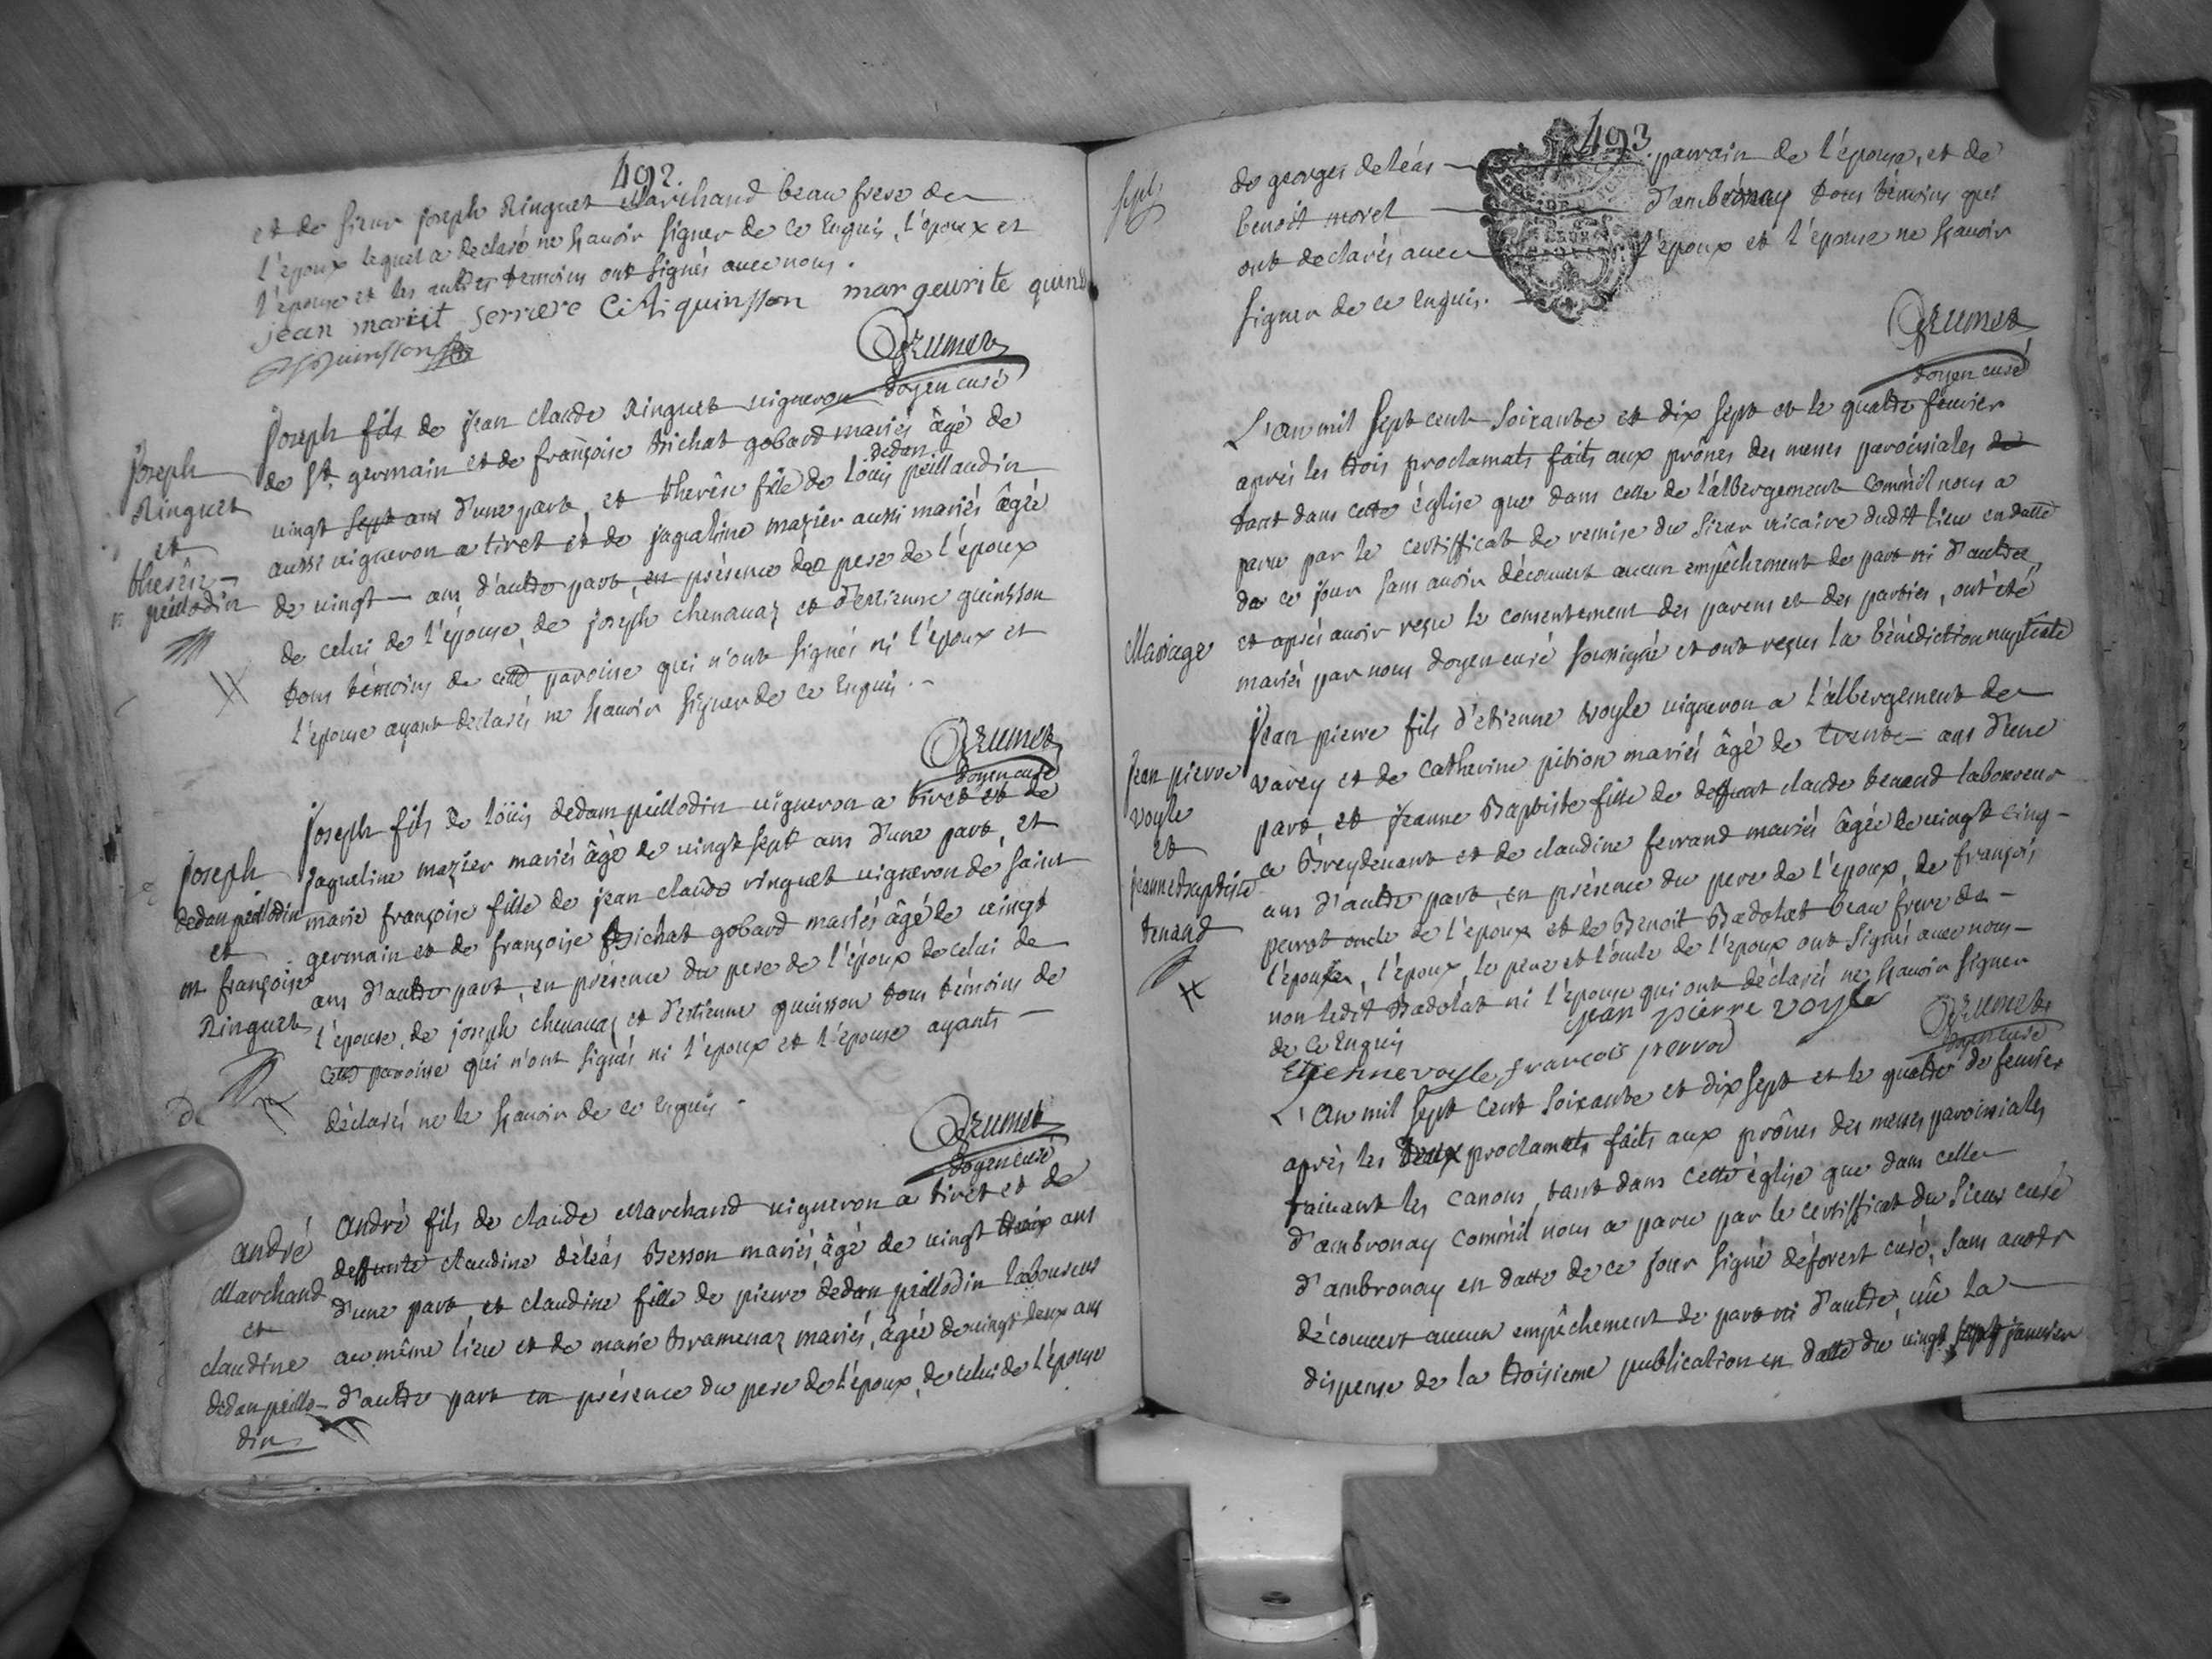 492.
et de sieur joseph Ringuet Marchand beau frere de
l'epoux lequel a declaré ne sçavoir signer de ce enquis, l'epoux et
l'epouse et les autres temoins ont signés avec nous.
jean mariet serriere quinsson margeurite quins
quinsson
Grumet
doyen curé
joseph
Ringuet
et
therêse
peillodin
joseph fils de jean claude Ringuet vigneron
de st. germain et de françoise Bichat gobard mariés âgé de
vingt sept ans d'une part, et therêse fille de loüis dedan peillaudin
aussi vigneron a tiret et de jaqueline mazier aussi mariés âgée
de vingt ans d'autre part, en présence des pere de l'époux
de celui de l'épouse, de joseph chenavaz et d'estienne quinsson
tous témoins de cette paroisse qui n'ont signés ni l'époux et
l'épouse ayant declarés ne sçavoir signer de ce enquis.
Grumet
doyen curé
joseph
dedan peillodin
et
m françoise
Ringuet
joseph fils de loüis dedam peillodin vigneron a tiret et de
jaqueline mazier mariés âgé de vingt sept ans d'une part, et
marie françoise fille de jean claude ringuet vigneron de saint
germain et de françoise Bichat gobard mariés âgé de vingt
ans d'autre part, en présence du pere de l'époux de celui de
l'épouse, de joseph chenavaz et d'estienne quinsson tous témoins de
cette paroisse qui n'ont signés ni l'époux et l'épouse ayants
déclarés ne le sçavoir de ce enquis.
Grumet
doyen curé
andré
Marchand
et
claudine
dedan peillo-
din
andré fils de claude Marchand vigneron a tiret et de
deffunte claudine déléas Besson mariés âgé de vingt trois ans
d'une part et claudine fille de pierre dedan peillodin laboureur
au même lieu et de marie Bramenaz mariés, âgée de vingt deux ans
d'autre part en présence du pere de l'époux, de celui de l'épouse
493.
de georges deléas parrain de l'épouse, et de
benoit moret d'ambronay tous témoins qui
ont declarés avec l'époux et l'épouse ne sçavoir
signer de ce enquis.
Grumet
doyen curé
Mariage
L'an mil sept cent soixante et dix sept et le quatre fevrier
aprés les trois proclamats faits aux prônes des messes paroissiales de
tant dans cette église que dans celle de l'albergement comm'il nous a
paru par le certifficat de remise du sieur vicaire dudit lieu en datte
de ce jour sans avoir découvert aucun empêchement de part ni d'autre,
et aprés avoir reçu le consentement des parens et des parties, ont été
mariés par nous doyen curé soussigné et ont reçus la bénédiction nuptiale
jean pierre
voyle
et
jeanne baptiste
tenand
jean pierre fils d'etienne voyle vigneron a l'albergement de
varey et de catherine pition mariés âgé de trente ans d'une
part, et jeanne Baptiste fille de deffunt claude tenand laboureur
a Breydevant et de claudine ferrand mariés âgée de vingt cinq
ans d'autre part, en présence du pere de l'époux, de françois
perrot oncle de l'époux et de Benoit Badolat beau frere de
l'épouse, l'époux, le pere et l'oncle de l'epoux ont signés avec nous
non ledit Badolat ni l'épouse qui ont déclarés ne sçavoir signer
de ce enquis
jean pierre voyle
Etienne voyle, francois perrod
Grumet
doyen curé
L'an mil sept cent soixante et dix sept et le quatre de fevrier
aprés les deux proclamats faits aux prônes des messes paroissiales
suivant les canons, tant dans cette église que dans celle
d'ambronay comm'il nous a paru par le certifficat du sieur curé
d'ambronay en datte de ce jour signé déforest curé, sans avoir
découvert aucun empêchement de part ni d'autre, vûe la
dispense de la troisieme publication en datte du vingt sept janvier